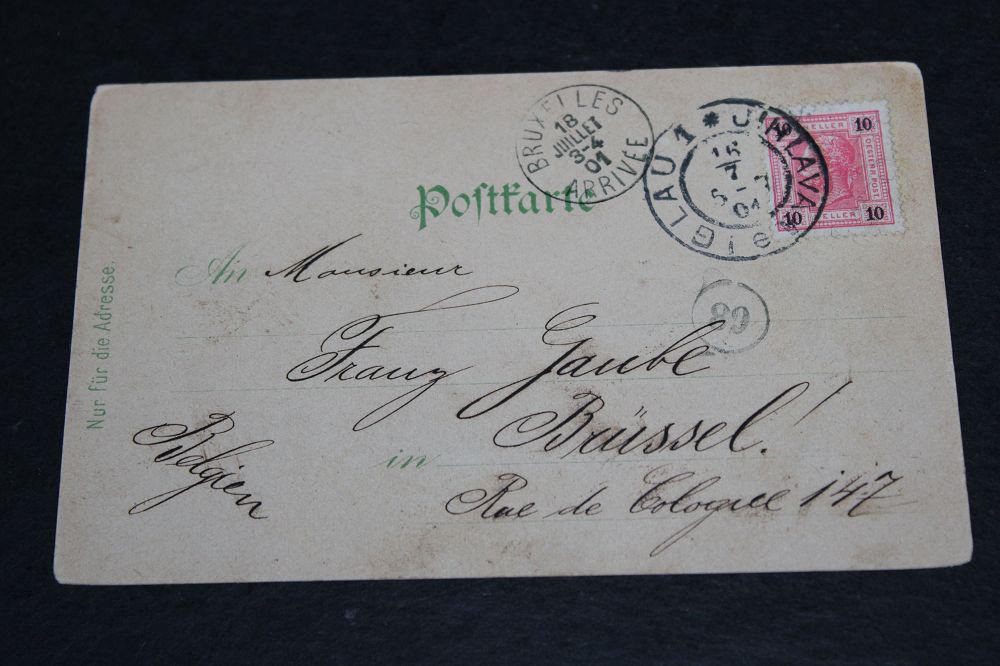 BRUXELLES
18
JUILLET
3-4
01
ARRIVÉE
IGLAU 1 * JIHLAVA
10 10
HELLER
OESTERR. POST
10 HELLER 10
Postkarte
An Monsieur
89
Franz Gaube
in Brüssel!
Rue de Cologne 147
Belgien
Nur für die Adresse.